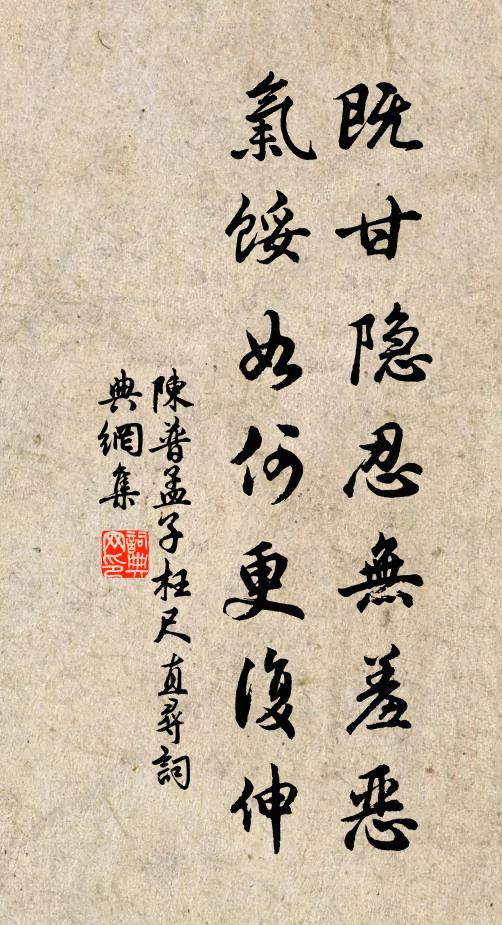 既甘隐忍無羞惡
氣餒如何更復伸
陳普孟子枉尺直尋詞
典網集
詞典網印